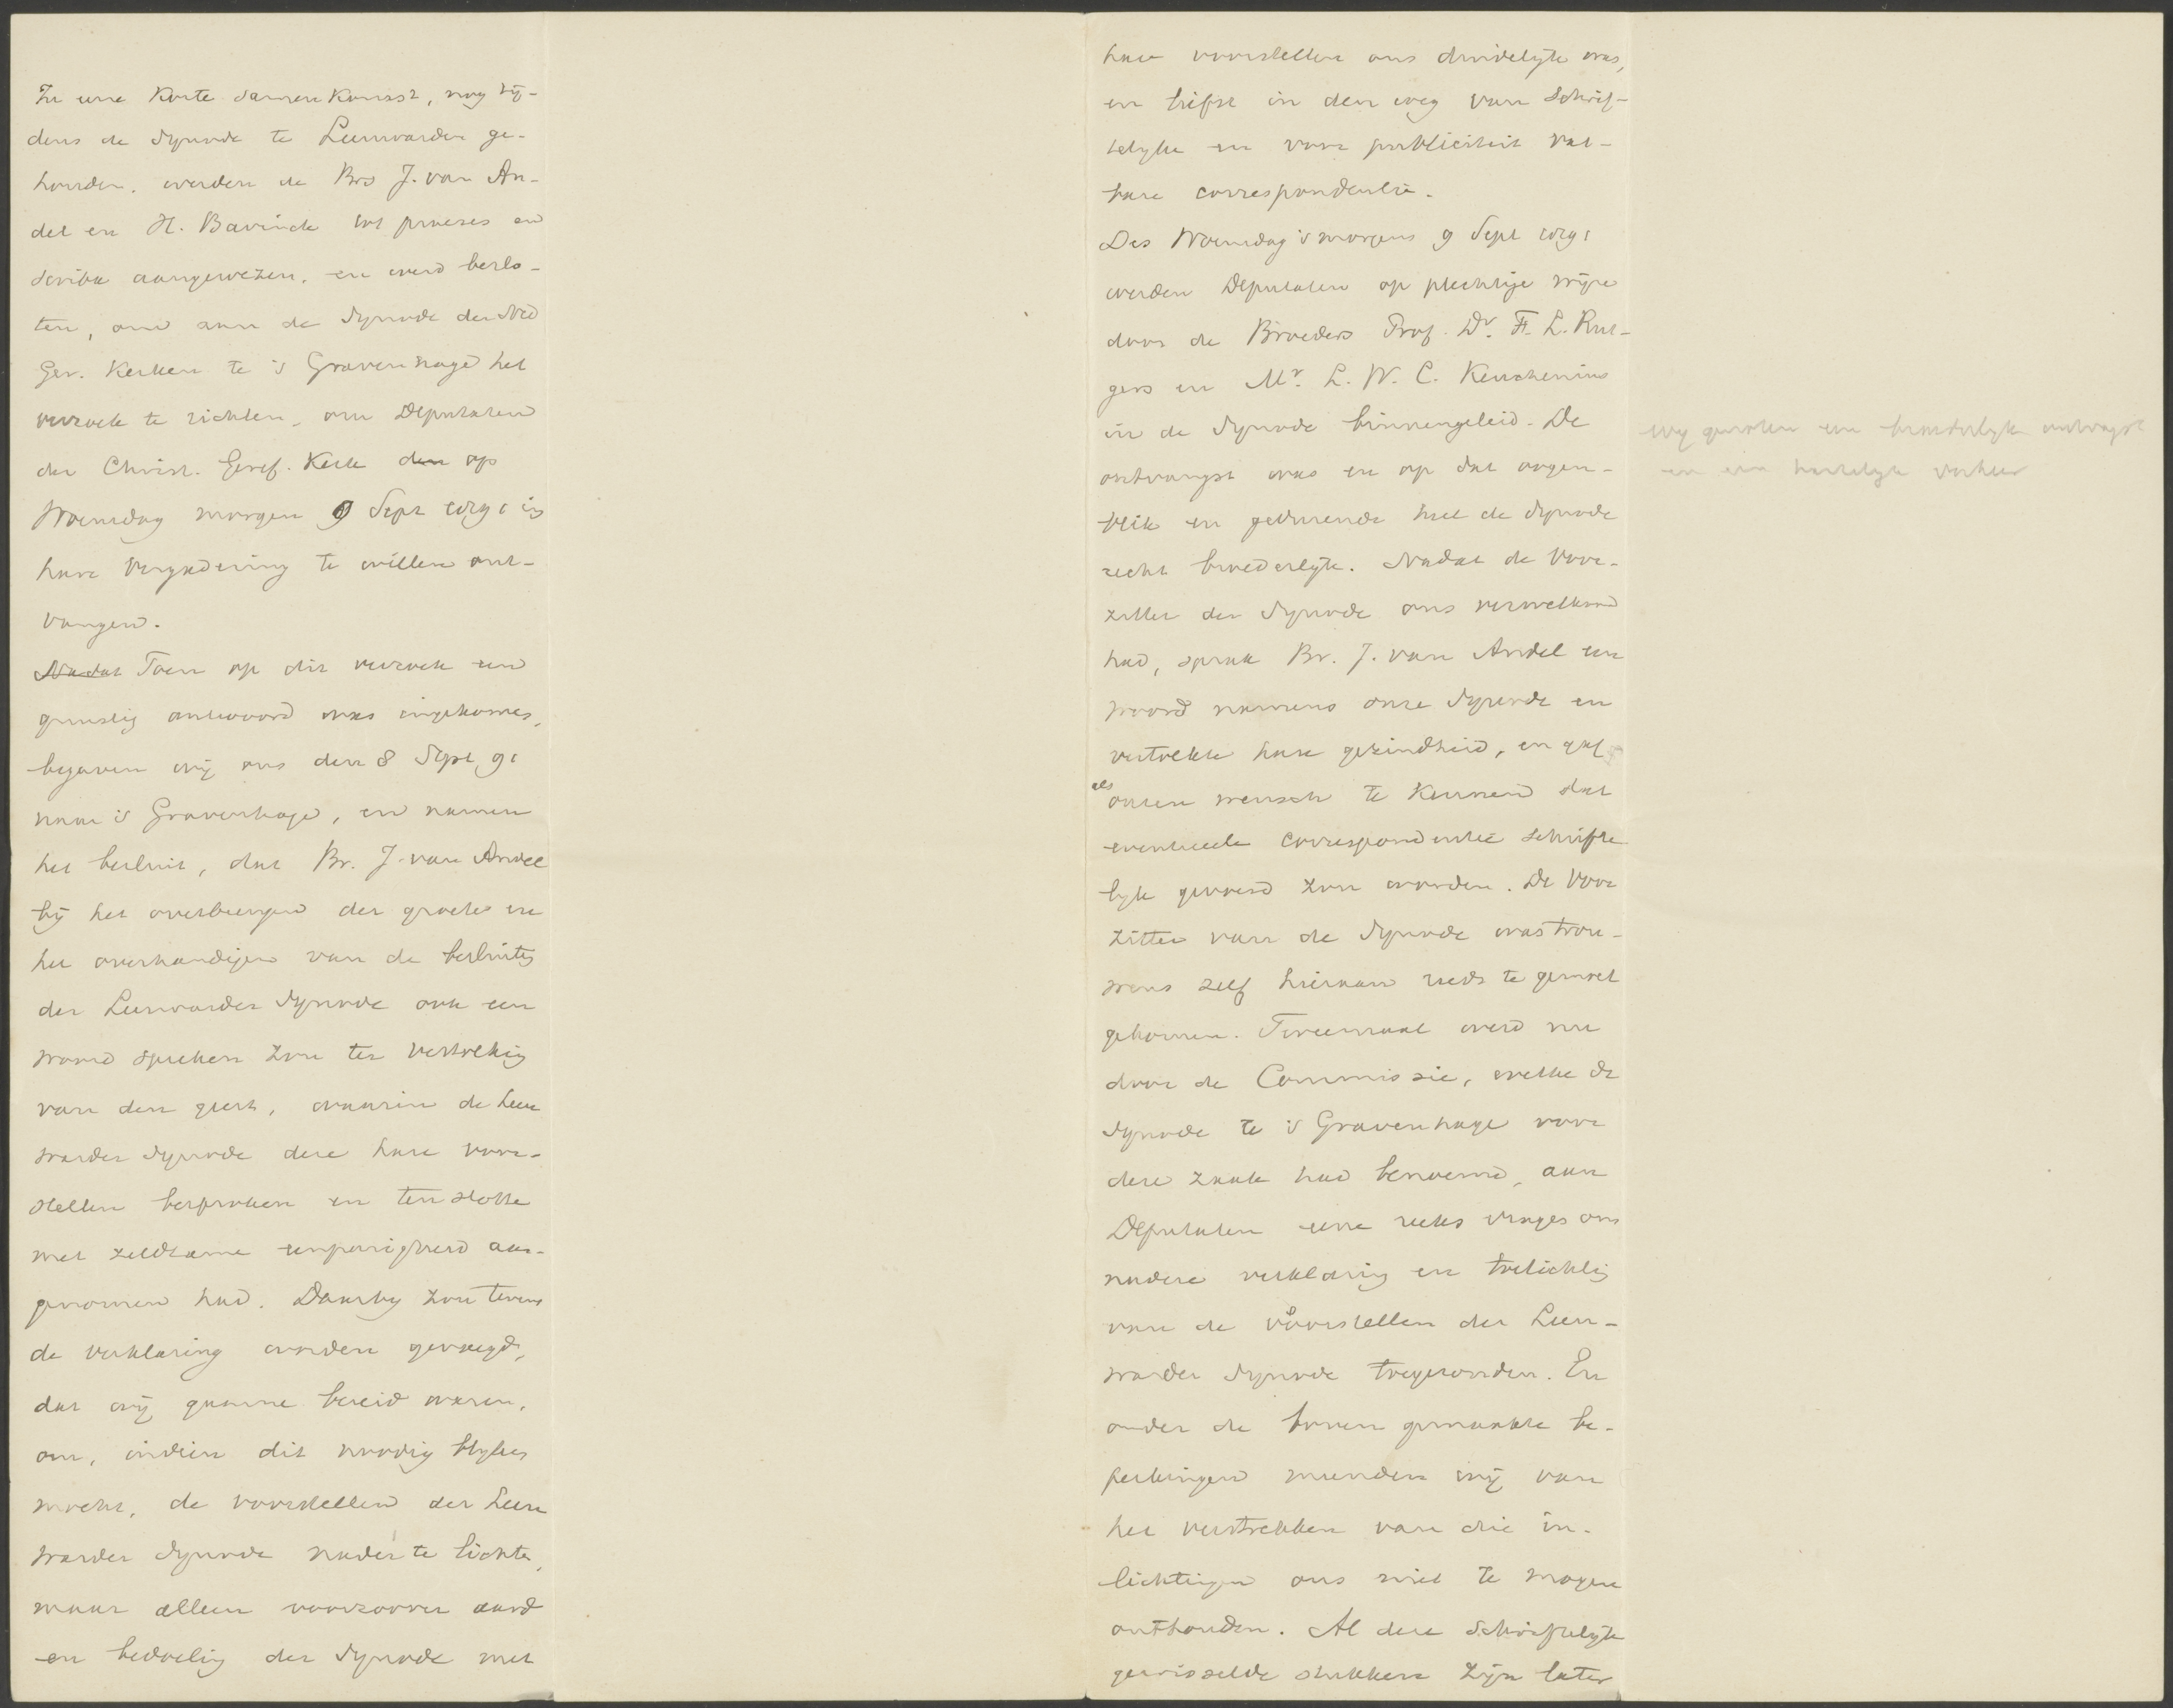 In eene korte samenkomst, nog tij-
dens de Synode te Leeuwarden ge-
houden, werden de Brs J. van An-
del en H. Bavinck tot praeses en
scriba aangewezen, en werd beslo-
ten, om aan de Synode der Ned
Ger. Kerken te 's Gravenhage het
verzoek te richten, om Deputaten
der Christ. Geref. Kerk den op
Woensdag morgen 9 Sept 1891 in
hare vergadering te willen ont-
vangen.
Nadat Toen op dit verzoek een
gunstig antwoord was ingekomen,
begaven wij ons den 8 Sept 91
naar 's Gravenhage, en namen
het besluit, dat Br. J. van Andel
bij het overbrengen der groete en
het overhandigen van de besluiten
der Leeuwarder Synode ook een
woord spreken zou ter vertolking
van den geest, waarin de Leeu
warder Synode deze hare voor-
stellen besproken en ten slotte
met zeldzame eenparigheid aan-
genomen had. Daarbij zou tevens
de verklaring worden gevoegd,
dat wij gaarne bereid waren,
om, indien dit noodig blijken
mocht, de voorstellen der Leeu
warder Synode nader te lichten,
maar alleen voorzoover aard
en bedoeling der Synode met
hare voorstellen ons duidelijk was,
en liefst in den weg van schrif-
telijke en voor publiciteit vat-
bare correspondentie.
Des Woensdag 's morgens 9 Sept 1891
werden Deputaten op plechtige wijze
door de Broeders Prof. Dr. F. L. Rut-
gers en Mr. L. W. C. Keuchenius
in de Synode binnengeleid. De
ontvangst was en op dat oogen-
blik en gedurende heel de Synode
recht broederlijk. Nadat de Voor-
zitter der Synode ons verwelkomd
had, sprak Br. J. van Andel een
woord namens onze Synode en
vertolkte hare gezindheid, en gaf
als
onzen wensch te kennen dat
eventueele correspondentie schrifte
lijk gevoerd zou worden. De Voor
zitter van de Synode was trou-
wens zelf hieraan reeds te gemoet
gekomen. Tweemaal werd nu
door de Commissie, welke de
Synode te 's Gravenhage voor
deze zaak had benoemd, aan
Deputaten eene reeks vragen om
nadere verklaring en toelichting
van de voorstellen der Leeu-
warder Synode toegezonden. En
onder de boven gemaakte be-
perkingen meenden wij van
het verstrekken van die in-
lichtingen ons niet te mogen
onthouden. Al deze schriftelijk
gewisselde stukken zijn later
wij genoten een broederlijke ontvangst
en een hartelijk verkeer